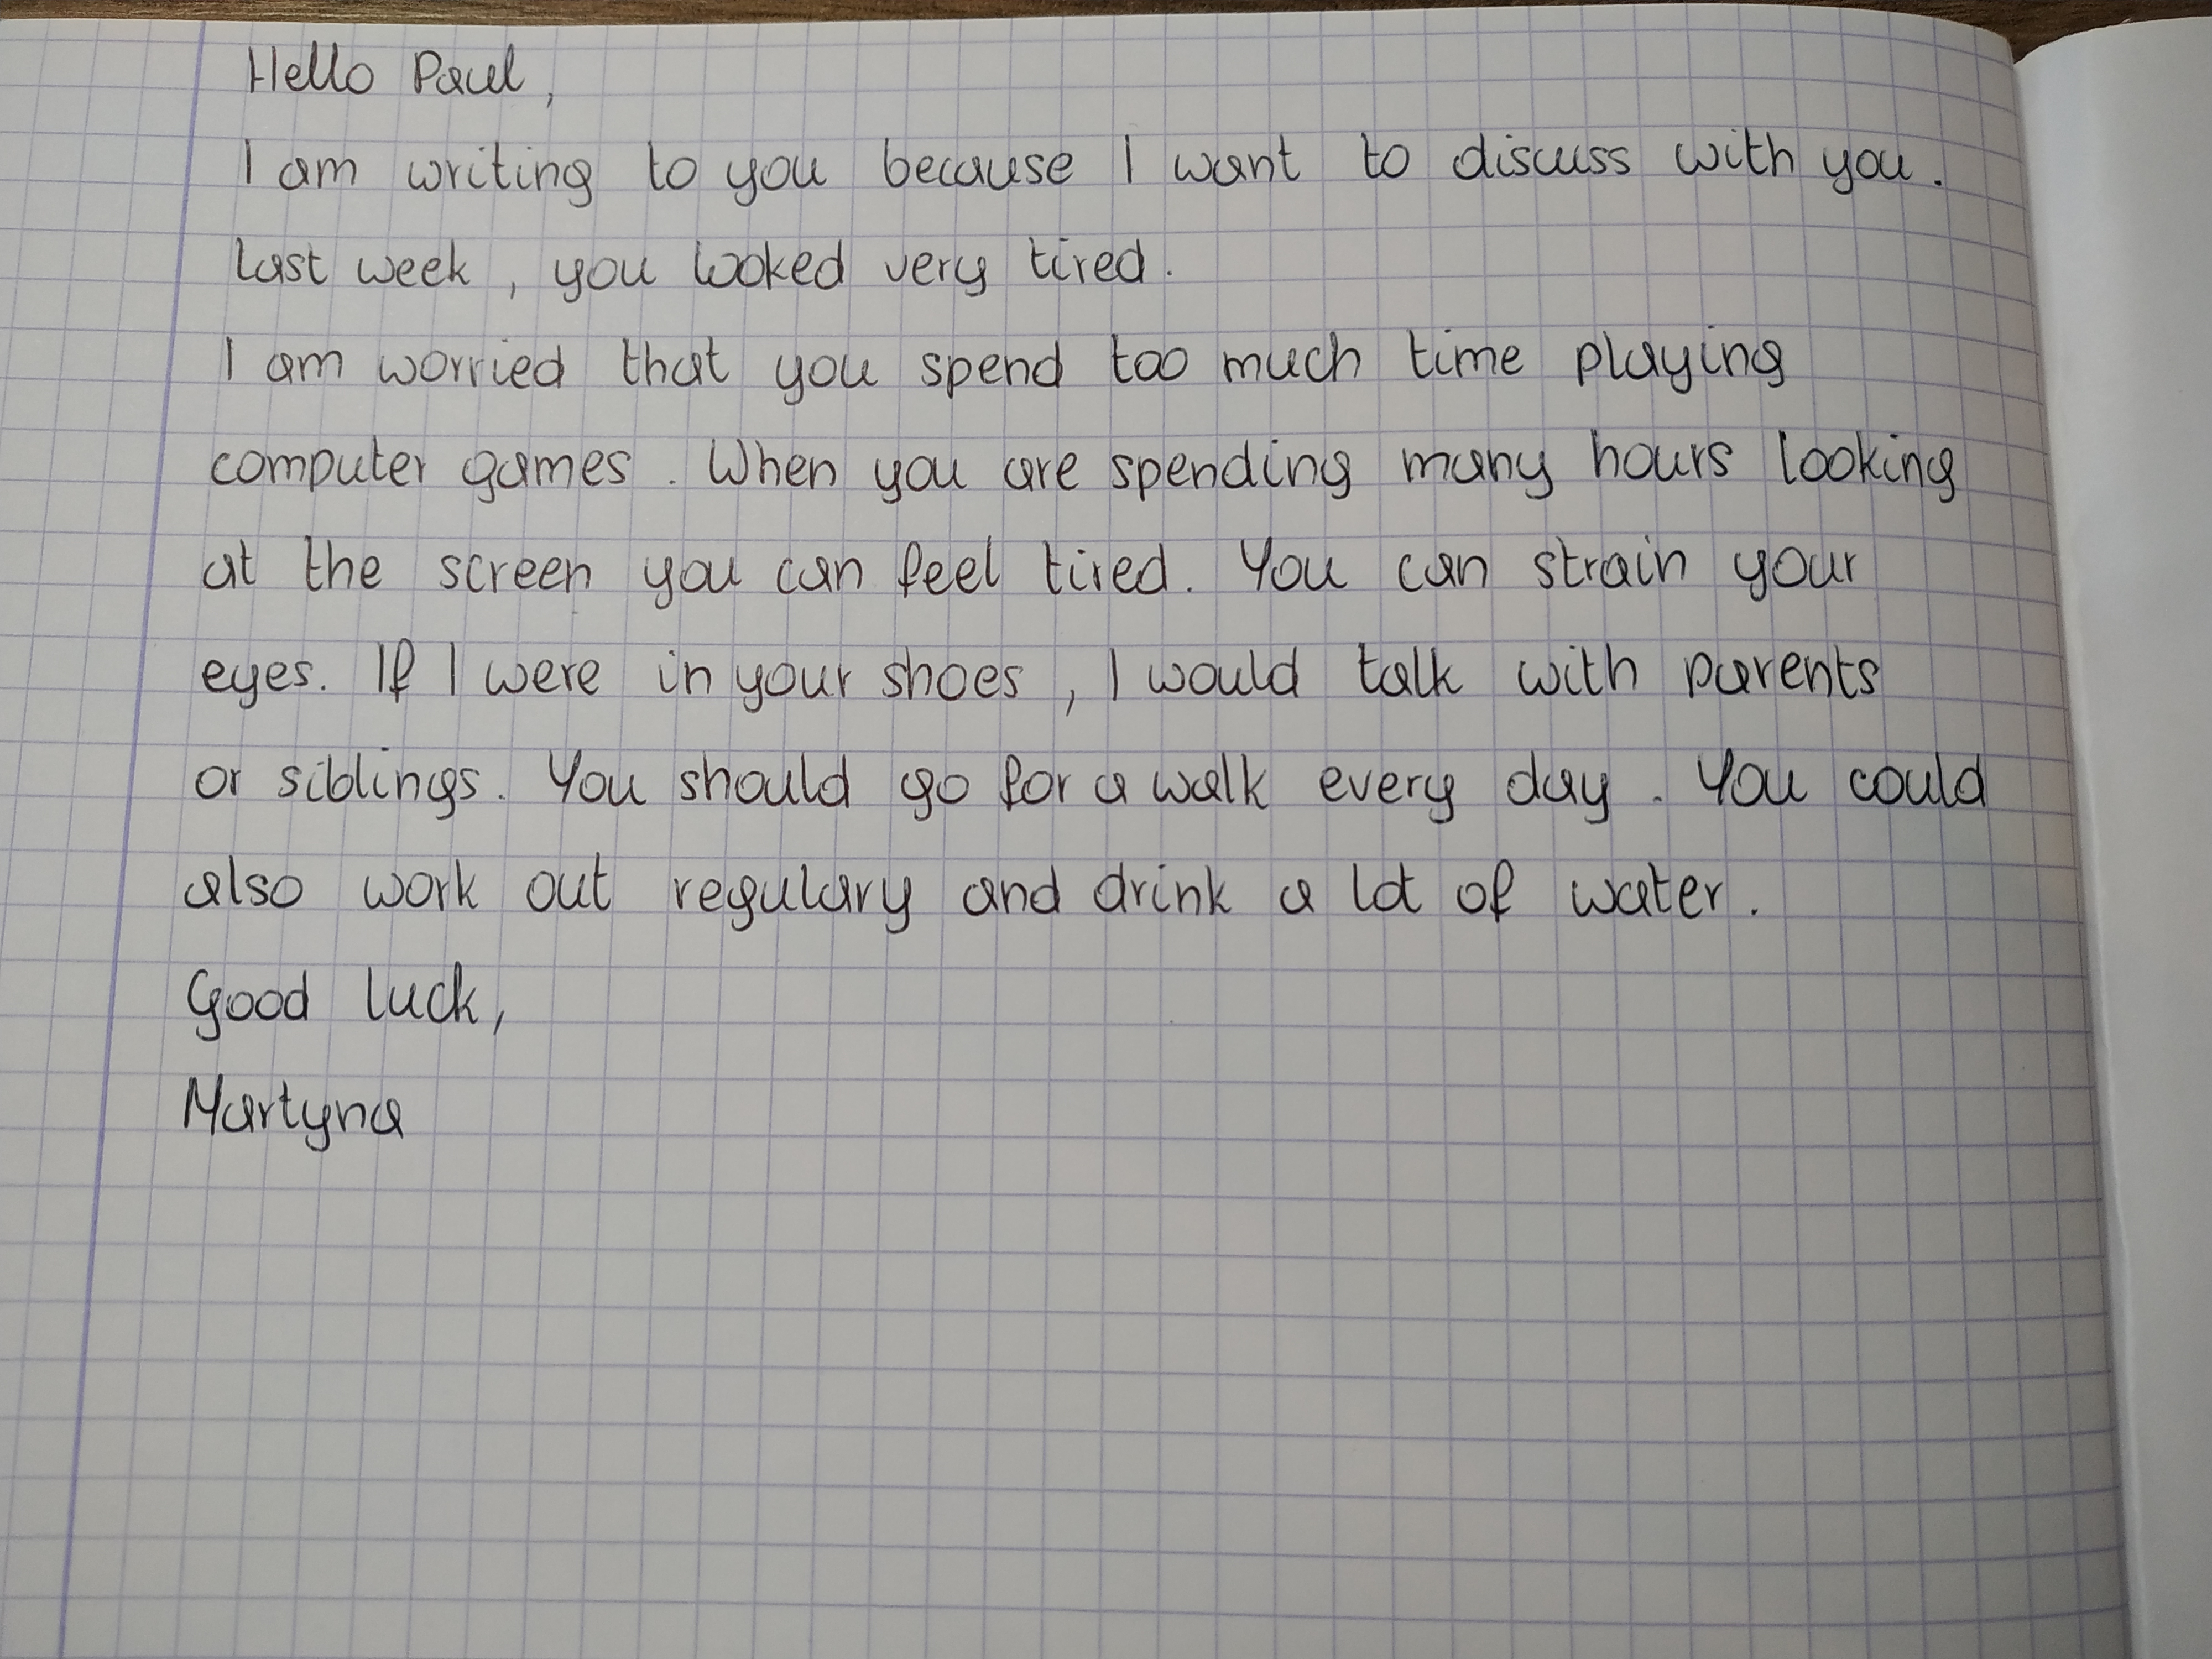 Hello Paul,
I am writing to you because I want to discuss with you.
Last week, you looked very tired.
I am worried that you spend too much time playing
computer games. When you are spending many hours looking
at the screen you can feel tired. You can strain your
eyes. If I were in your shoes, I would talk with parents
or siblings. You should go for a walk every day. You could
also work out regulary and drink a lot of water.
Good luck,
Martyna